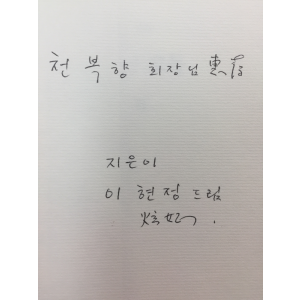 천 복 향 회장님 惠存
지은이
이 현정 드림